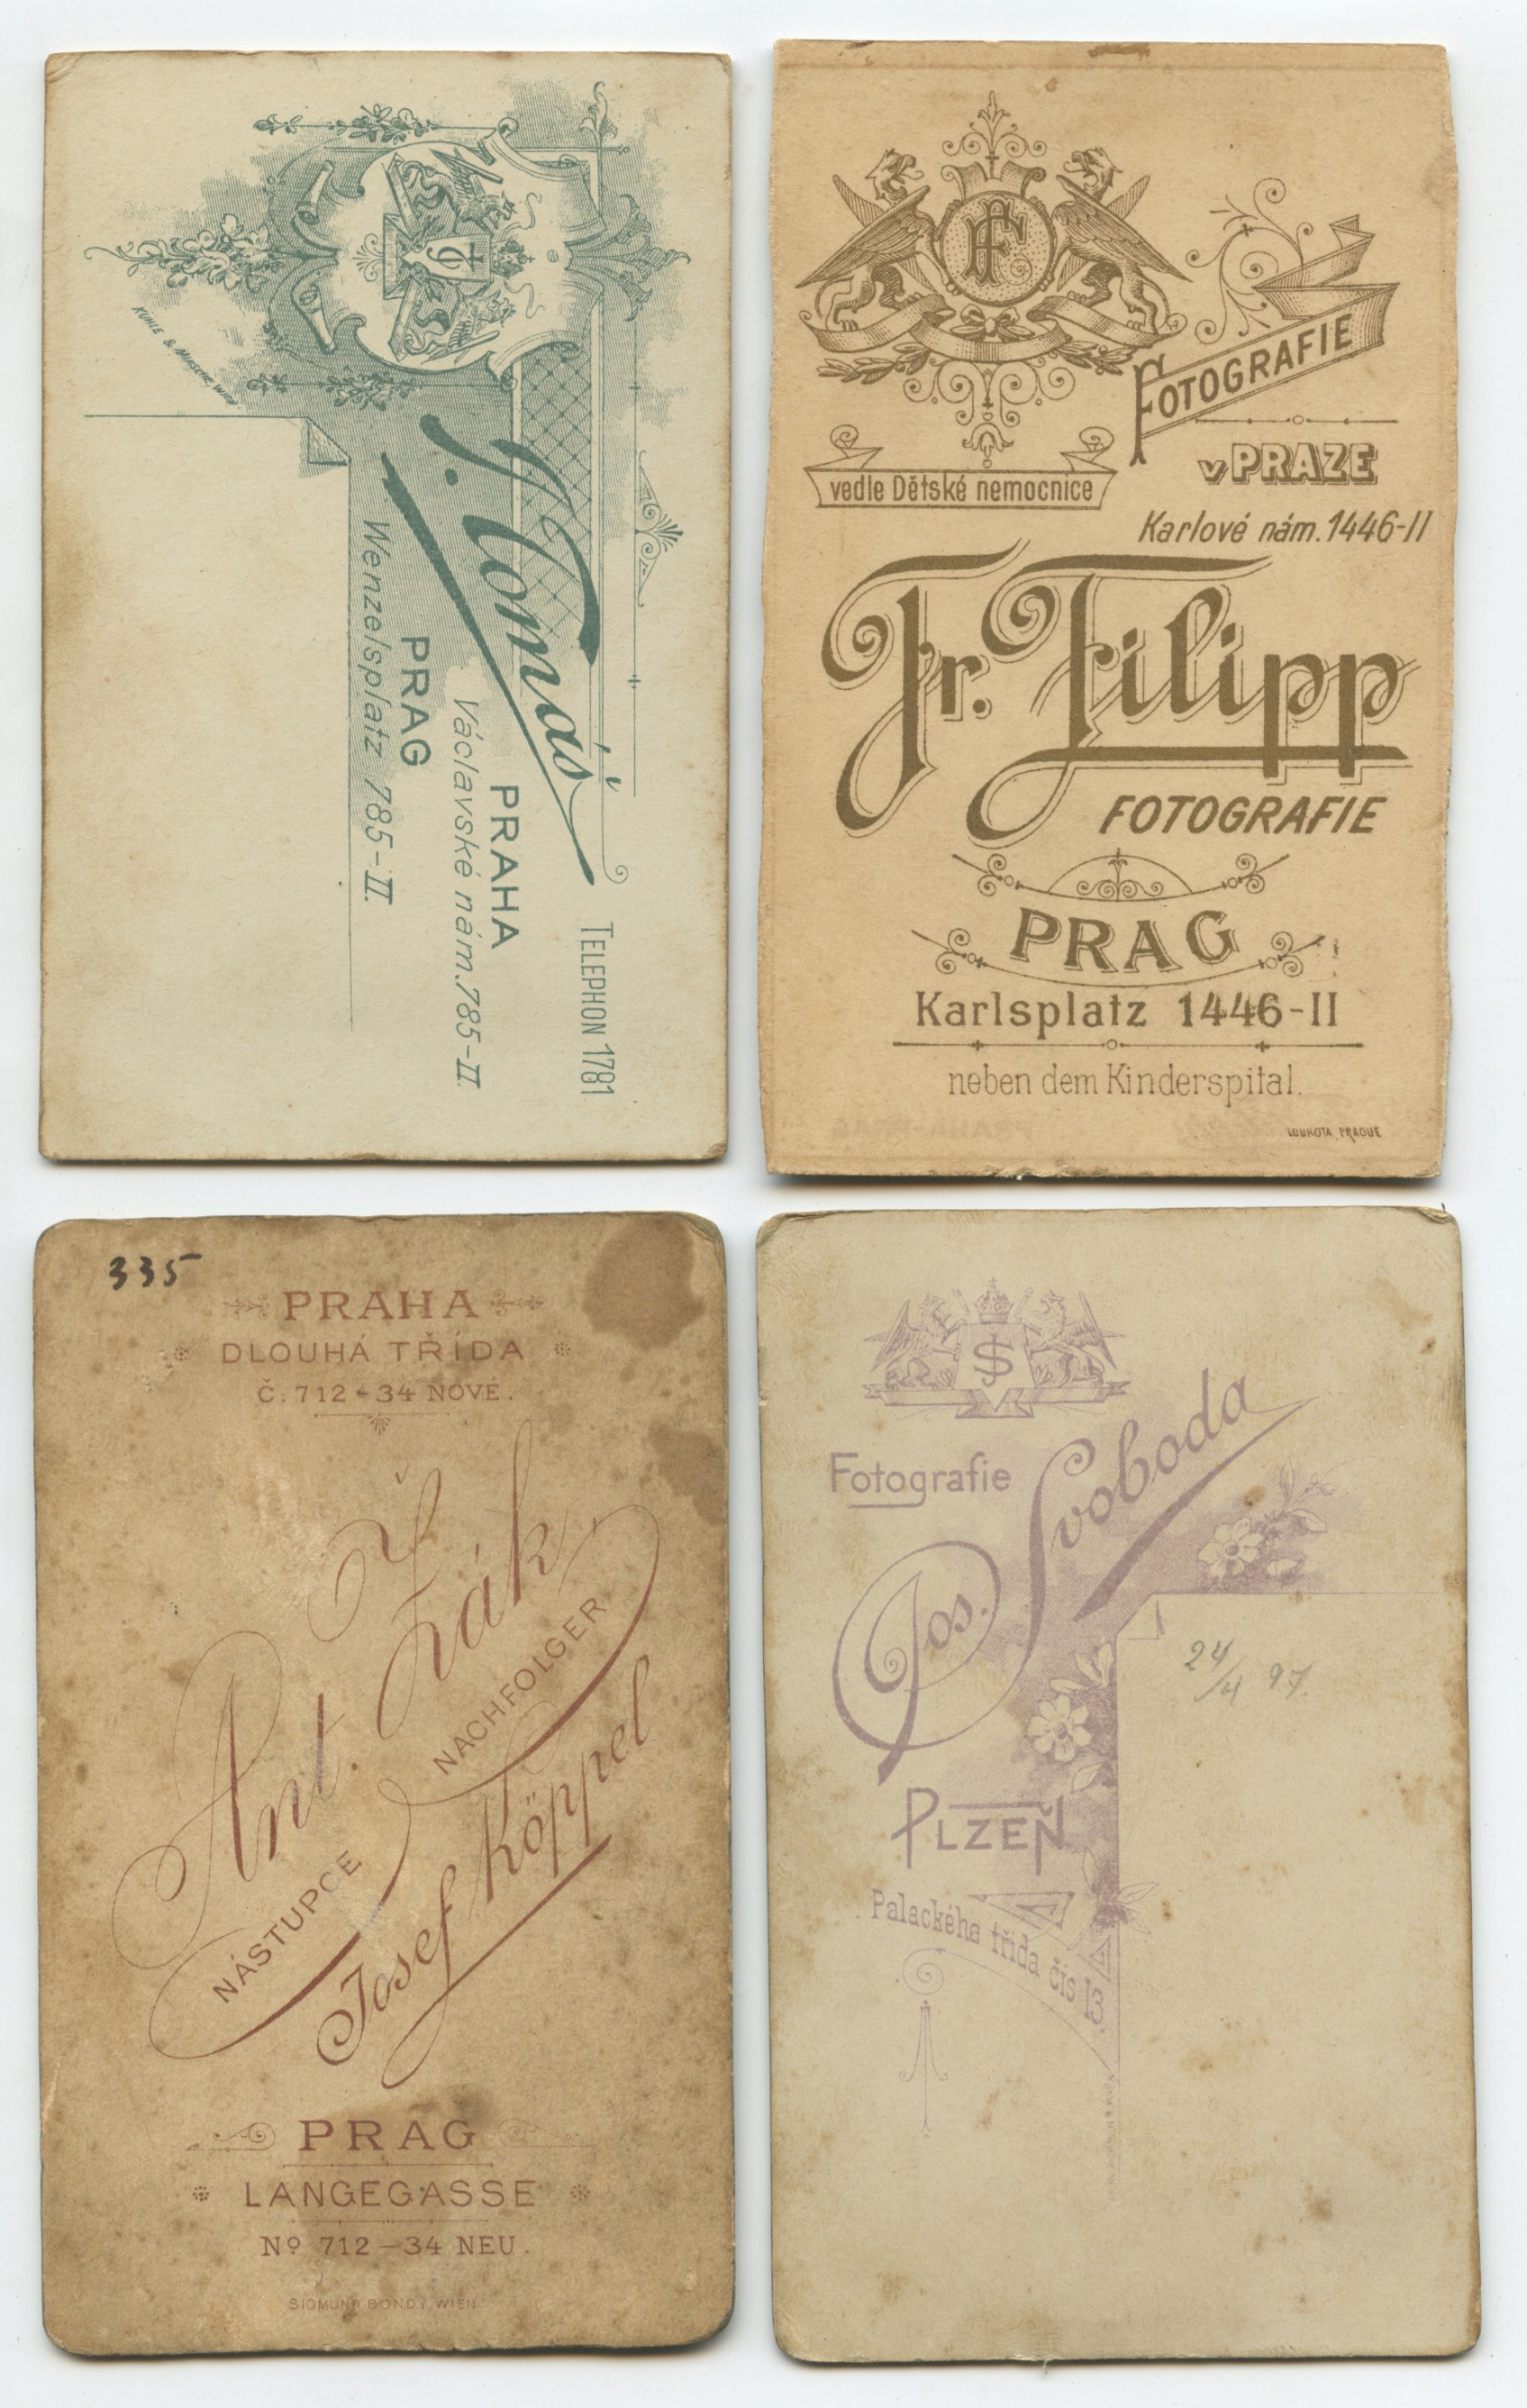 J. Tomáš
TELEPHON 1781
PRAHA
Václavské nám. 785-II.
PRAG
Wenzelsplatz 785-II.
FF
FOTOGRAFIE
v PRAZE
vedle Dětské nemocnice
Karlové nám. 1446-II
Fr. Filipp
FOTOGRAFIE
PRAG
Karlsplatz 1446-II
neben dem Kinderspital.
LOUKOTA PRAGUE
335
PRAHA
DLOUHÁ TŘÍDA
Č. 712-34 NOVÉ.
Ant. Žák
NÁSTUPCE NACHFOLGER
Josef Köppel
PRAG
LANGEGASSE
No 712-34 NEU.
SIGMUND BONDY, WIEN
JS
Fotografie
Jos. Svoboda
24/4 97.
PLZEŇ
Palackého třída čís 13.